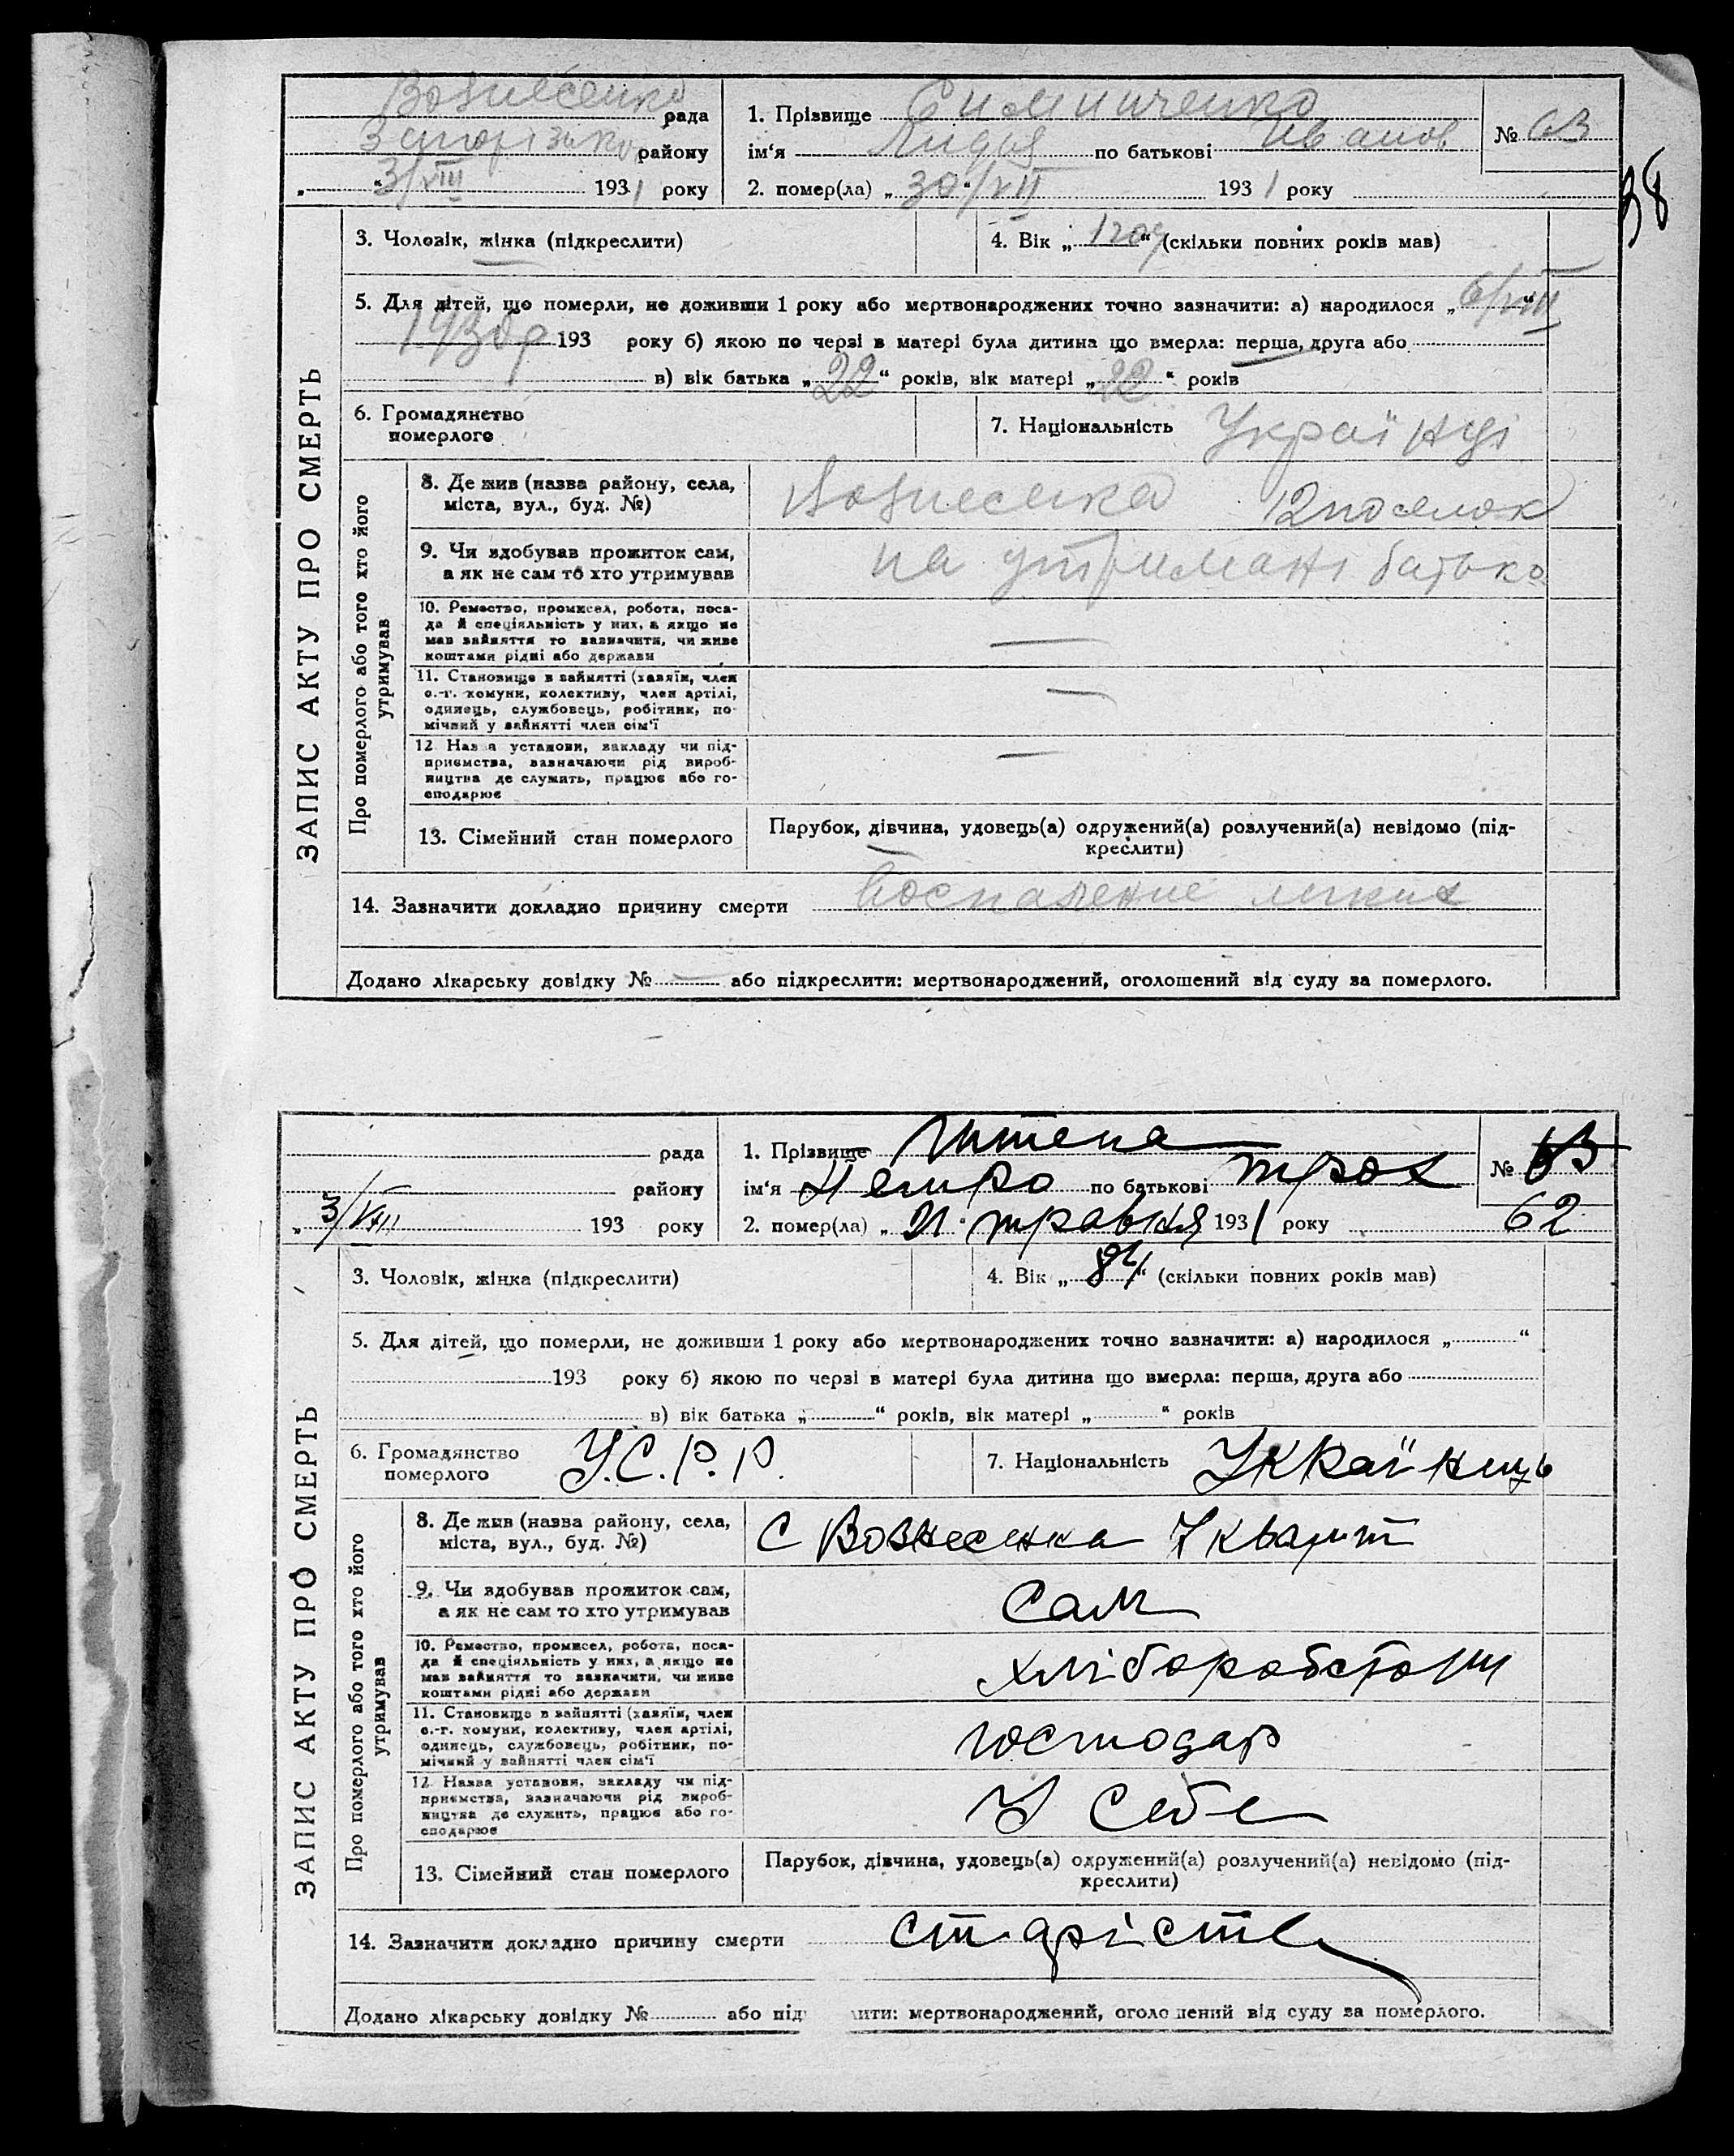 38
ЗАПИС АКТУ ПРО СМЕРТЬ
Вознесенко рада
Запорізьког району
„ 3/VIII 1931 року
1. Прізвище Симниченко
ім‘я Лидия по батькові Иванов
№ 63
2. помер(ла) „30“/VII 1931 року
3. Чоловік, жінка (підкреслити)
4. Вік „1 год“ (скільки повних років мав)
5. Для дітей, що померли, не доживши 1 року або мертвонароджених точно зазначити: а) народилося „6/VIII“
1930 р 193 року б) якою по черзі в матері була дитина що вмерла: перша, друга або
в) вік батька „22“ років, вік матері „22“ років
6. Громадянство
померлого
7. Національність Українці
Про померлого або того хто його
утримував
8. Де жив (назва району, села,
міста, вул., буд. №)
Вознесенка 12 поселок
9. Чи здобував прожиток сам,
а як не сам то хто утримував
на утримані батько
10. Ремество, промисел, робота, поса-
да й спеціяльність у них, а якщо не
мав зайняття то зазначити, чи живе
коштами рідні або держави
—
11. Становище в зайнятті (хазяїн, член
с.-г. комуни, колективу, член артілі,
одинець, службовець, робітник, по-
мічний у зайнятті член сім‘ї
—
12. Назва установи, закладу чи під-
приємства, зазначаючи рід вироб-
ництва де служить, працює або го-
сподарює
—
13. Сімейний стан померлого
Парубок, дівчина, удовець(а) одружений(а) розлучений(а) невідомо (під-
креслити)
14. Зазначити докладно причину смерти Воспаление легких
Додано лікарську довідку № — або підкреслити: мертвонароджений, оголошений від суду за померлого.
ЗАПИС АКТУ ПРО СМЕРТЬ
рада
району
„ 3/VIII 193 року
1. Прізвище
ім‘я Петро по батькові Трох
№ 63
62
2. помер(ла) „21“ травня 1931 року
3. Чоловік, жінка (підкреслити)
4. Вік „84“ (скільки повних років мав)
5. Для дітей, що померли, не доживши 1 року або мертвонароджених точно зазначити: а) народилося „ “
193 року б) якою по черзі в матері була дитина що вмерла: перша, друга або
в) вік батька „ “ років, вік матері „ “ років
6. Громадянство
померлого
У.С.Р.Р.
7. Національність Українць
Про померлого або того хто його
утримував
8. Де жив (назва району, села,
міста, вул., буд. №)
С Вознесенка 7 кварт
9. Чи здобував прожиток сам,
а як не сам то хто утримував
Сам
10. Ремество, промисел, робота, поса-
да й спеціяльність у них, а якщо не
мав зайняття то зазначити, чи живе
коштами рідні або держави
11. Становище в зайнятті (хазяїн, член
с.-г. комуни, колективу, член артілі,
одинець, службовець, робітник, по-
мічний у зайнятті член сім‘ї
господар
12. Назва установи, закладу чи під-
приємства, зазначаючи рід вироб-
ництва де служить, працює або го-
сподарює
У себе
13. Сімейний стан померлого
Парубок, дівчина, удовець(а) одружений(а) розлучений(а) невідомо (під-
креслити)
14. Зазначити докладно причину смерти старість
Додано лікарську довідку № або під ити: мертвонароджений, оголо ений від суду за померлого.